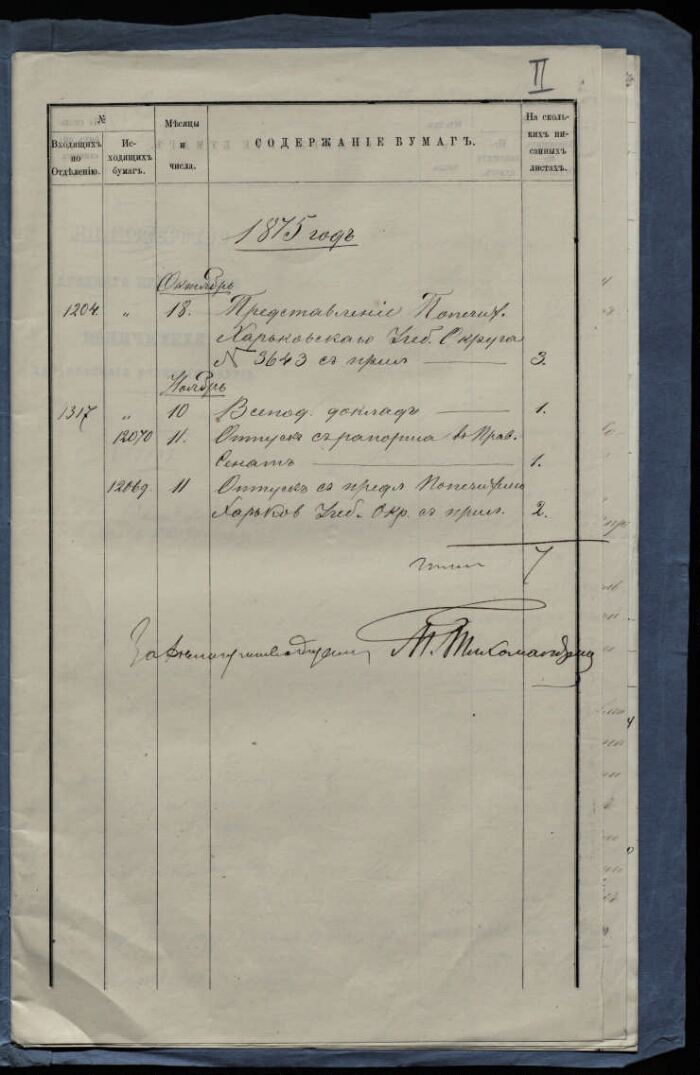 II
№
Входящихъ по Отдѣленію.
Исходящихъ бумагъ.
Мѣсяцы и числа.
СОДЕРЖАНІЕ БУМАГЪ.
На сколькихъ писанныхъ листахъ.
1875 годъ
Октябрь
1204 „ 18. Представленіе Попечит.
Харьковскаго Учеб. Округа
N 3643 съ прил 3.
Ноябрь
1317 „ 10 Всепод. докладъ 1.
12070 11. Отпускъ съ рапорта въ Прав.
Сенатъ 1.
12069. 11 Отпускъ съ предл Попечителю
Харьков Учеб. Окр. съ прил. 2.
Итого 7